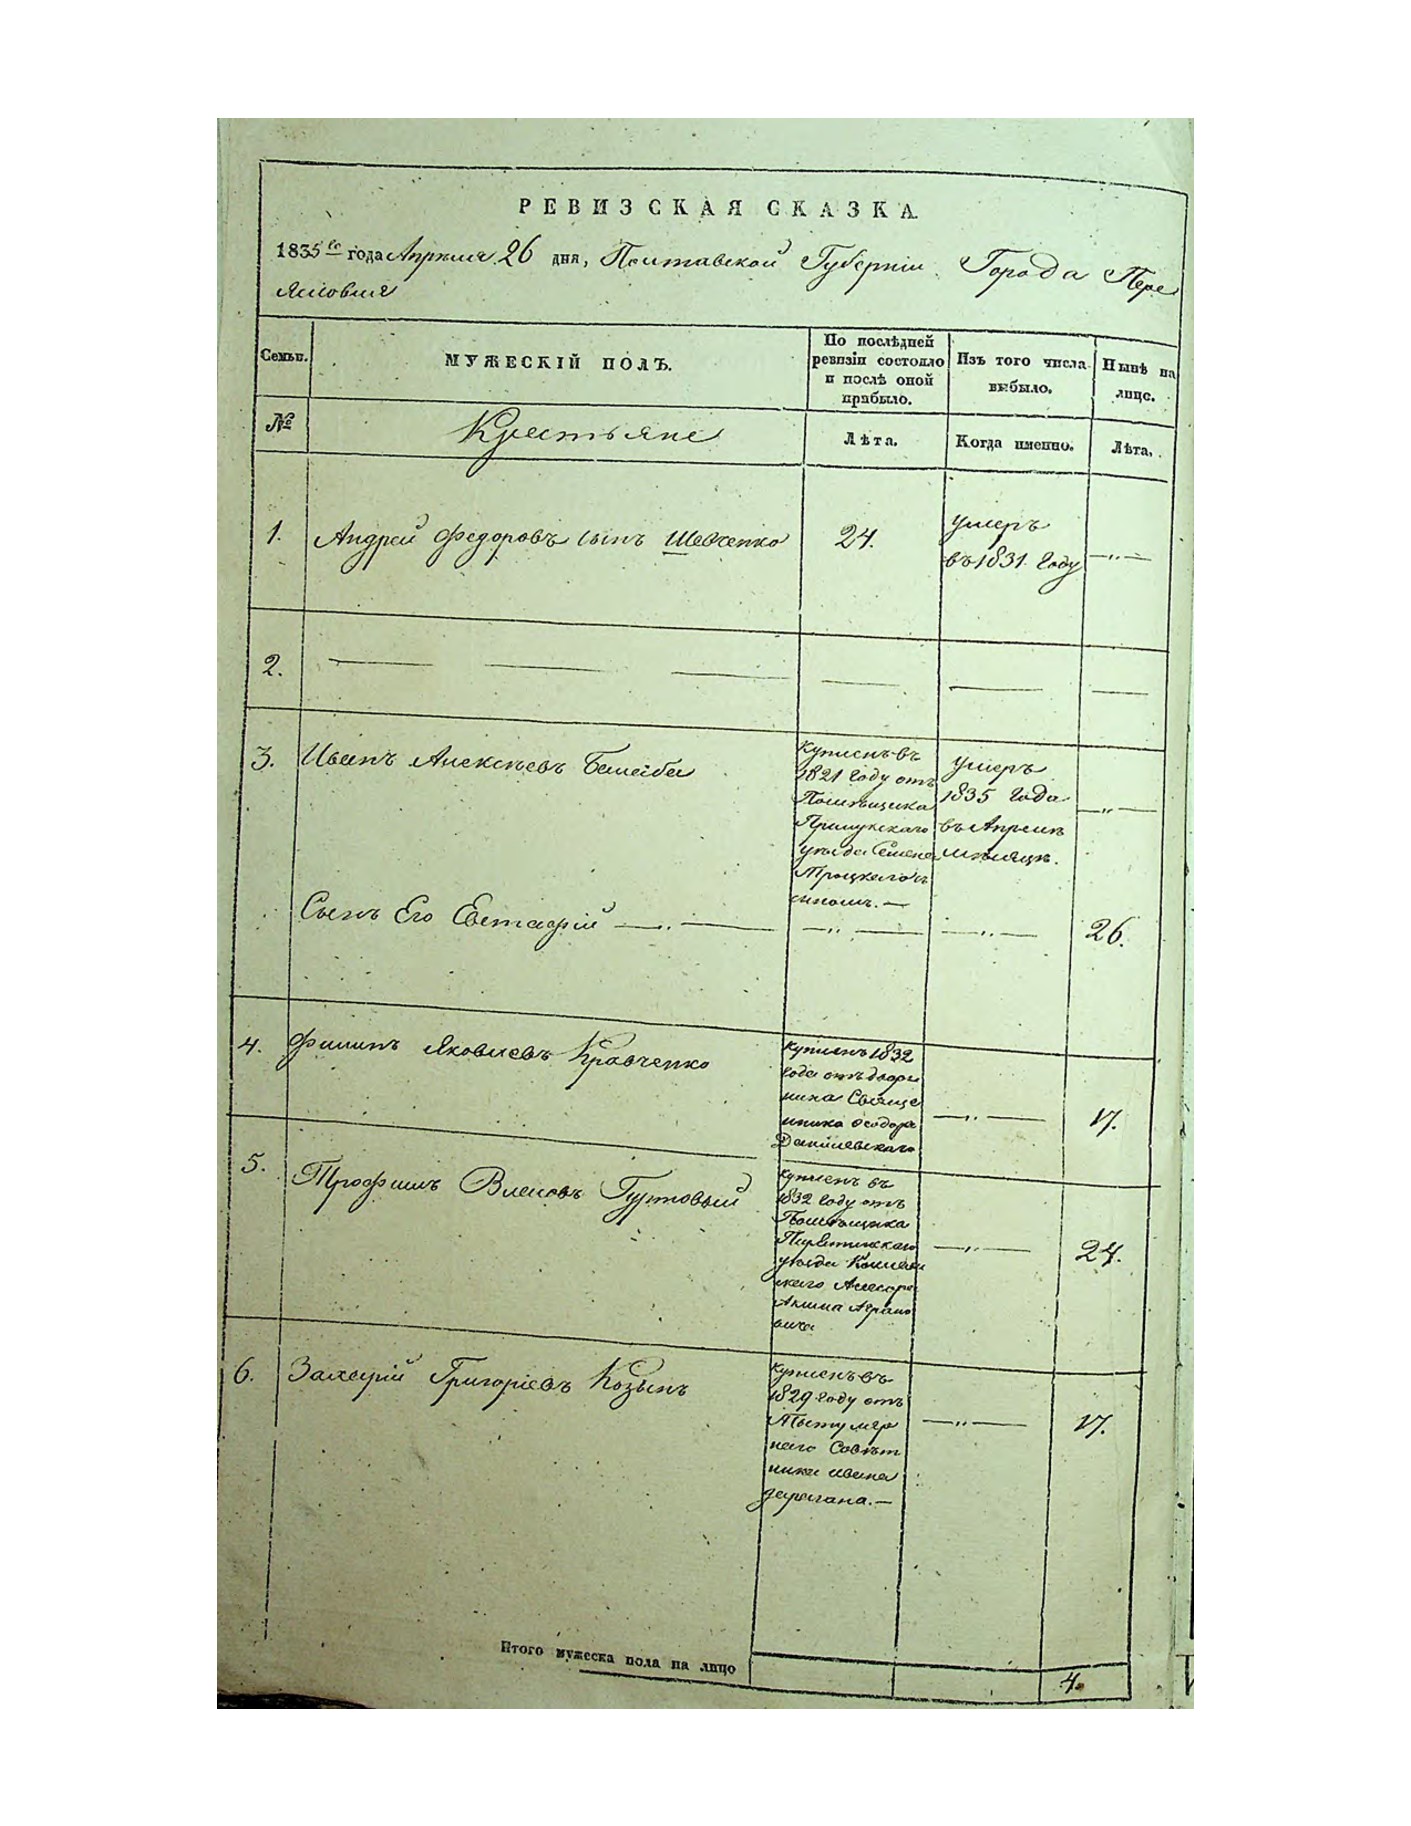 РЕВИЗСКАЯ СКАЗКА.
1835го года Апреля 26 дня, Полтавской Губернии Города Пере
ясловля
Семьи.
МУЖЕСКІЙ ПОЛЪ.
По послѣдней
ревизіи состояло
и послѣ оной
прибыло.
Изъ того числа
выбыло.
Нынѣ на
лицо.
№
Крестьяне
Лѣта.
Когда именно.
Лѣта.
1.
Андрей Федоровъ сынъ Шевченко
24.
умеръ
въ 1831 году
—„—
2.
3.
Иванъ Алексѣевъ
Купленъ въ
1821 году отъ
Помѣщика
Прилукскаго
уѣзда Семена
Троцкаго съ
сыномъ. —
умеръ
1835 года
въ Апрелѣ
мѣсяцѣ.
—„—
Сынъ Его Евстафій —„—
—„—
—„—
26.
4.
Филипъ Яковлевъ Кравченко
Купленъ 1832
года отъ двора
нина Свяще
нника Феодора
Данилевскаго
—„—
17.
5.
Трофимъ Власовъ Гуртовый
Купленъ въ
1832 году отъ
Помѣщика
Пирятинскаго
уѣзда Колеж
скаго Асесора
Акима
—„—
24.
6.
Захарій Григоріевъ Козынъ
Купленъ въ
1829 году отъ
Тытуляр
наго Совѣт
ника Ивана
—„—
17.
Итого мужеска пола на лицо
4.